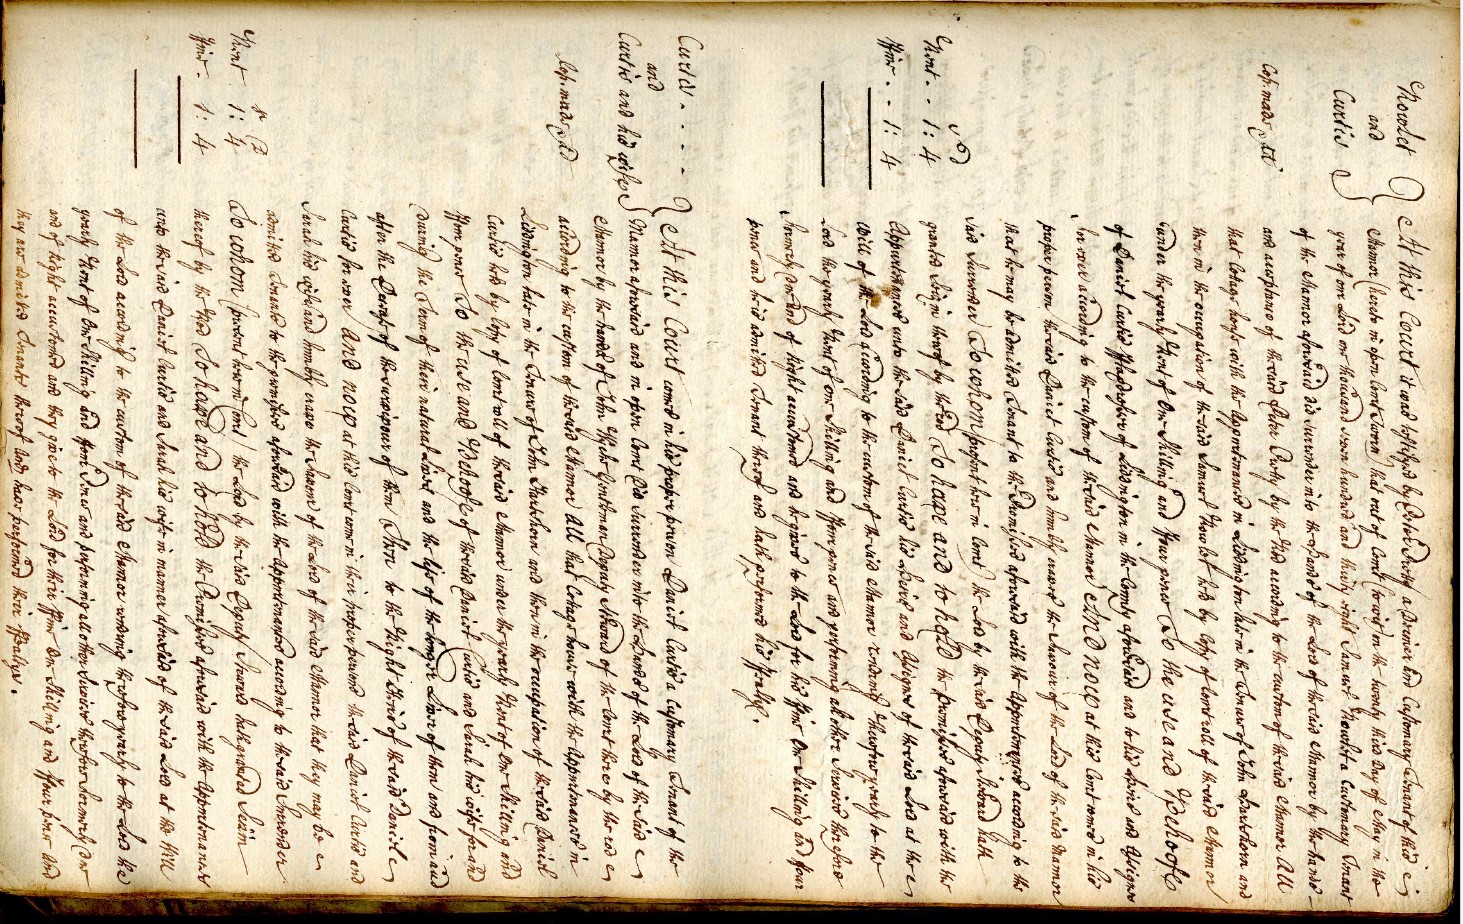 Howlet
and
Curtis
Cop. made
Rent . . 1 : 4
Fine . . 1 : 4
At this Court it was testifyed by Peter Presby a Deemer and Customary Tenant of this
Manor (herein in open Court Sworn) that out of Court to wit on the twenty third Day of May in the
year of our Lord one thousand seven hundred and thirty eight Samuel Howlet a Customary Tenant
of the Manor aforesaid did surrender into the Hands of the Lord of the said Manor by the hands
and acceptance of the said Peter Presby by the Rod according to the custom of the said Manor All
that Cottage house with the Appurtenances in Liddington late in the Tenure of John Hawthorn and
then in the occupation of the said Samuel Howlet held by Copy of Court roll of the said Manor
under the yearly Rent of One Shilling and Four pence To the use and Behoofe
of Daniel Curtis of Liddington in the County aforesaid and to his Heirs and Assigns
for ever according to the custom of the said Manor And now at this Court comes in his
proper person the said Daniel Curtis and humbly craves the favour of the Lord of the said Manor
that he may be admitted Tenant to the Premises aforesaid with the Appurtenances according to the
said Surrender To whom (present here in Court) the Lord by the said Deputy Steward hath
granted Seizin thereof by the Rod To have and to hold the premises aforesaid with the
Appurtenances unto the said Daniel Curtis his Heirs and Assigns of the said Lord at the
Will of the Lord according to the custom of the said Manor rendring therefore yearly to the
Lord the yearly Rent of one Shilling and Four pence and performing all other Services therefore
formerly due and of Right accustomed and he gives to the Lord for his Fine One Shilling and four
pence and he is admitted Tenant thereof and hath performed his Fealty.
Curtis . . . .
and
Curtis and his wife
Cop. made
Rent 1 : 4
Fine . 1 : 4
At this Court comes in his proper person Daniel Curtis a Customary Tenant of the
Manor aforesaid and in open Court Did surrender into the Hands of the Lord of the said
Manor by the hands of John Gentleman Deputy Steward of the Court there by the rod
according to the custom of the said Manor All that Cottage house with the Appurtenances in
Liddington late in the Tenure of John Hawthorn and then in the occupation of the said Daniel
Curtis held by Copy of Court roll of the said Manor under the yearly Rent of One Shilling and
Four pence To the use and Behoofe of the said Daniel Curtis and Sarah his wife for and
during the Term of their natural Lives and the life of the longer Liver of them and from and
after the Decease of the survivour of them Then to the Right Heirs of the said Daniel
Curtis for ever And now at this Court come in their proper persons the said Daniel Curtis and
Sarah his wife and humbly crave the favour of the Lord of the said Manor that they may be
admitted Tenants to the premises aforesaid with the Appurtenances according to the said Surrender
To whom (present here in Court) the Lord by the said Deputy Steward hath granted Seizin
thereof by the Rod To have and to hold the Premises aforesaid with the Appurtenances
unto the said Daniel Curtis and Sarah his wife in manner aforesaid of the said Lord at the Will
of the Lord according to the custom of the said Manor rendring therefore yearly to the Lord the
yearly Rent of One Shilling and Four Pence and performing all other Services therefore formerly due
and of Right accustomed and they give to the Lord for their Fine One Shilling and Four pence and
they are admitted Tenants thereof and have performed their Fealtys.